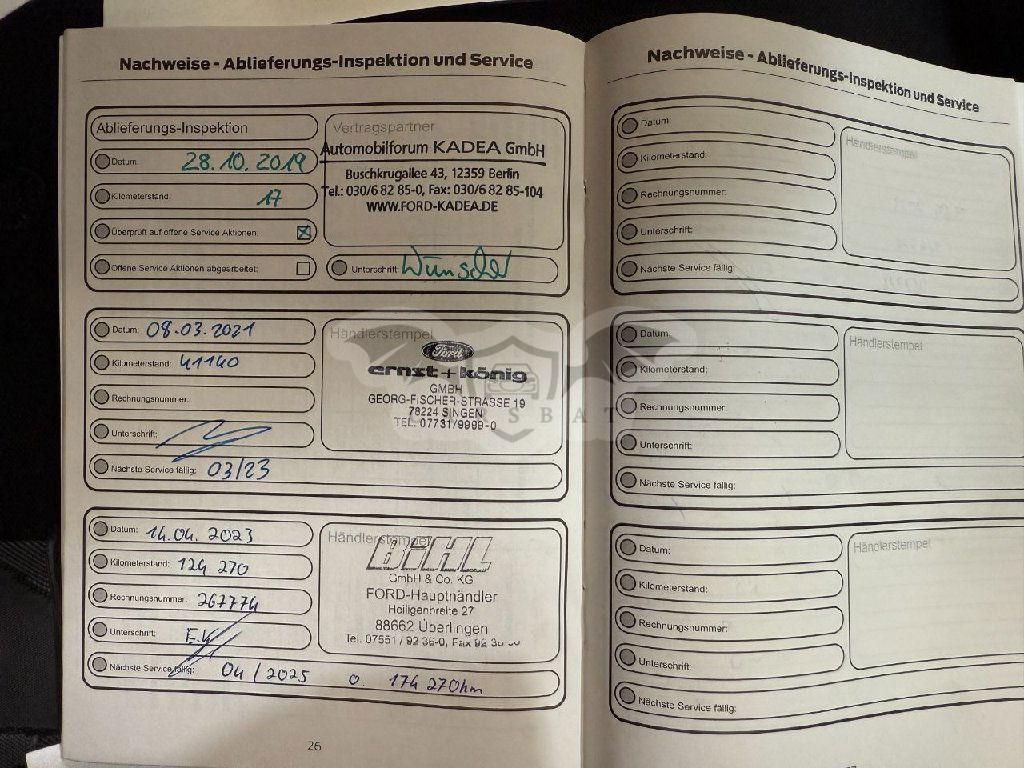 Nachweise - Ablieferungs-Inspektion und Service
Ablieferungs-Inspektion
Datum: 28.10.2019
Kilometerstand: 17
Überprüft auf offene Service Aktionen:
Offene Service Aktionen abgearbeitet:
Vertragspartner
Automobilforum KADEA GmbH
Buschkrugallee 43, 12359 Berlin
Tel.: 030/6 82 85-0, Fax: 030/6 82 85-104
WWW.FORD-KADEA.DE
Unterschrift:
Datum: 08.03.2021
Kilometerstand: 41140
Rechnungsnummer:
Unterschrift:
Nächste Service fällig: 03/23
Händlerstempel
Ford
ernst+könig
GMBH
GEORG-FISCHER-STRASSE 19
78224 SINGEN
TEL. 07731/9999-0
Datum: 14.04.2023
Kilometerstand: 124 270
Rechnungsnummer: 267774
Unterschrift:
Nächste Service fällig: 04/2025 o. 174 270km
Händlerstempel
GmbH & Co. KG
FORD-Haupthändler
Heiligenbreite 27
88662 Überlingen
Tel. 07551 / 92 36-0, Fax 92 36
26
Nachweise - Ablieferungs-Inspektion und Service
Datum:
Kilometerstand:
Rechnungsnummer:
Unterschrift:
Nächste Service fällig:
Händlerstempel
Datum:
Kilometerstand:
Rechnungsnummer:
Unterschrift:
Nächste Service fällig:
Händlerstempel
Datum:
Kilometerstand:
Rechnungsnummer:
Unterschrift:
Nächste Service fällig:
Händlerstempel